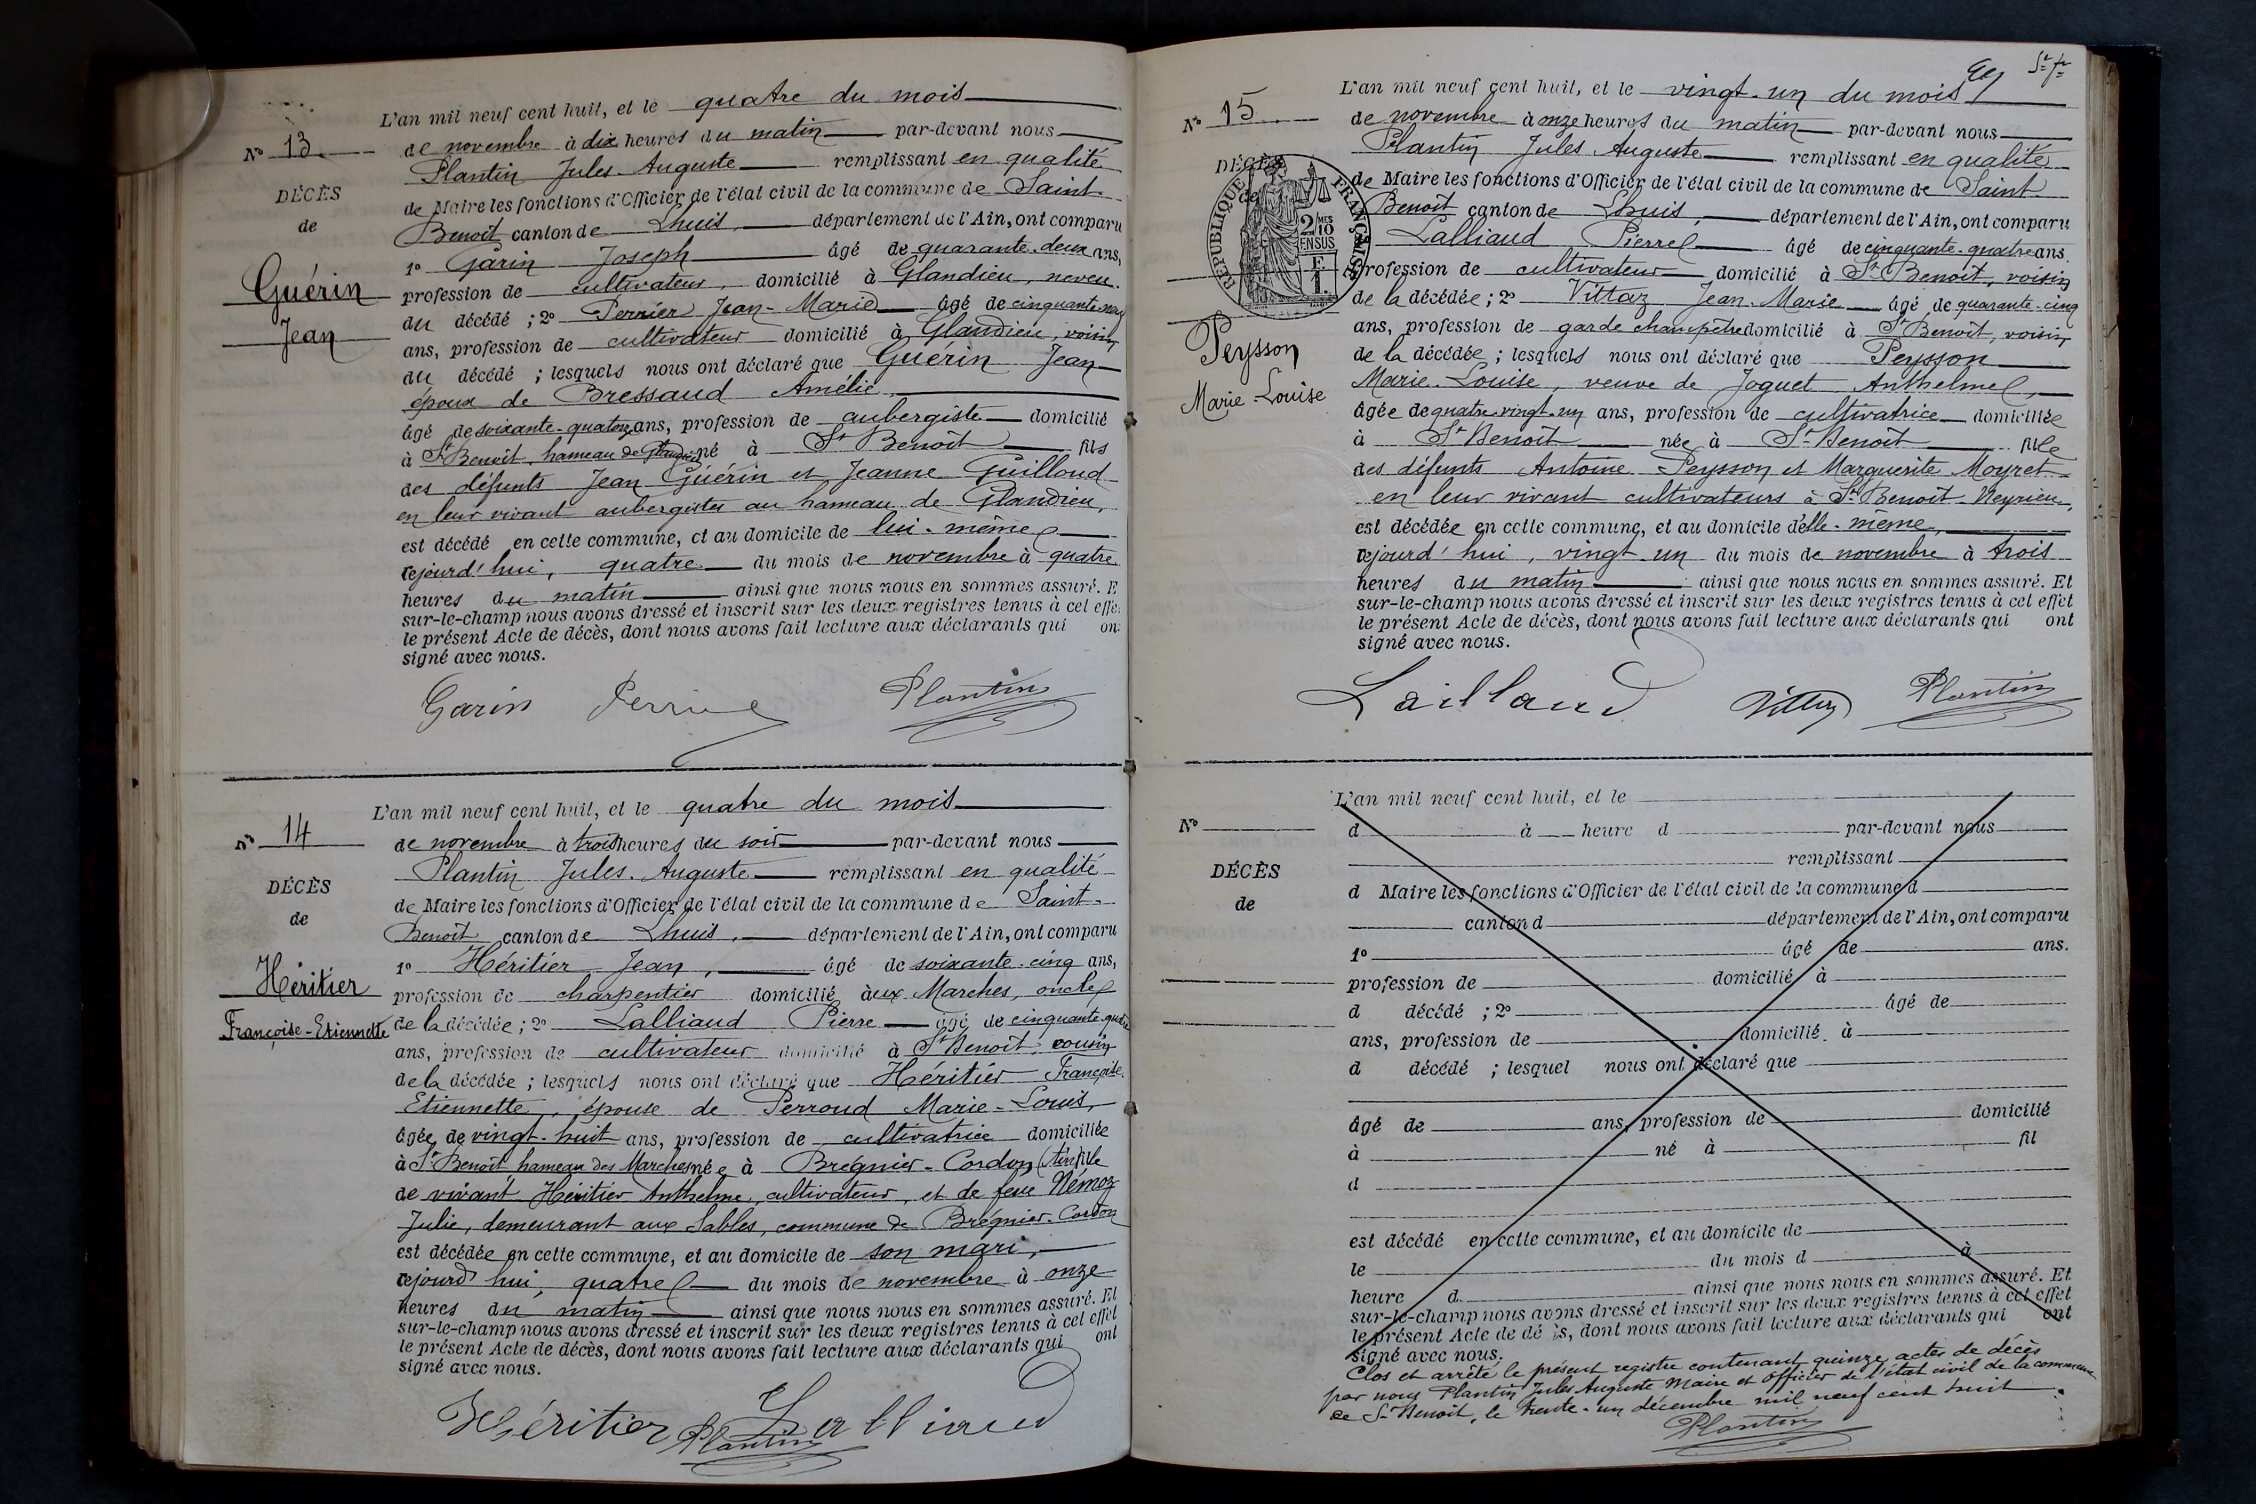 L'an mil neuf cent huit, et le quatre du mois
No 13.
de novembre à dix heures du matin par-devant nous
Plantin Jules Auguste remplissant en qualité
DÉCÈS
de Maire les fonctions d'Officier de l'état civil de la commune de Saint-
de
Benoît canton de Lhuis, département de l'Ain, ont comparu
1o Garin Joseph âgé de quarante-deux ans,
Guérin
profession de cultivateur, domicilié à Glandieu, neveu
du décédé ; 2o Perrier Jean-Marie âgé de cinquante-neuf
Jean
ans, profession de cultivateur domicilié à Glandieu, voisin
du décédé ; lesquels nous ont déclaré que Guérin Jean
époux de Bressaud Amélie
âgé de soixante-quatorze ans, profession de aubergiste domicilié
à St Benoît, hameau de Glandieu né à St Benoît fils
des défunts Jean Guérin et Jeanne Guilloud
en leur vivant aubergistes au hameau de Glandieu,
est décédé en cette commune, et au domicile de lui-même
cejourd'hui, quatre du mois de novembre à quatre
heures du matin ainsi que nous nous en sommes assuré. E
sur-le-champ nous avons dressé et inscrit sur les deux registres tenus à cet effe
le présent Acte de décès, dont nous avons fait lecture aux déclarants qui on
signé avec nous.
Garin Perrier Plantin
L'an mil neuf cent huit, et le quatre du mois
No 14
de novembre à trois heures du soir par-devant nous
Plantin Jules-Auguste remplissant en qualité
DÉCÈS
de Maire les fonctions d'Officier de l'état civil de la commune de Saint-
de
Benoît canton de Lhuis, département de l'Ain, ont comparu
1o Héritier Jean, âgé de soixante-cinq ans,
Héritier
profession de charpentier domicilié aux Marches, oncle
Françoise-Etiennette
de la décédée ; 2o Lalliaud Pierre âgé de cinquante-quatre
ans, profession de cultivateur domicilié à St Benoît, cousin
de la décédée ; lesquels nous ont déclaré que Héritier Françoise
Etiennette, épouse de Perroud Marie-Louis,
âgée de vingt-huit ans, profession de cultivatrice domiciliée
à St Benoît hameau des Marches née à Brégnier-Cordon (Ain) fille
de vivant Héritier Anthelme, cultivateur, et de feue Némoz
Julie, demeurant aux Sables, commune de Brégnier-Cordon
est décédée en cette commune, et au domicile de son mari,
cejourd'hui, quatre du mois de novembre à onze
heures du matin ainsi que nous nous en sommes assuré. Et
sur-le-champ nous avons dressé et inscrit sur les deux registres tenus à cet effet
le présent Acte de décès, dont nous avons fait lecture aux déclarants qui ont
signé avec nous.
Héritier Lalliaud
Plantin
L'an mil neuf cent huit, et le vingt-un du mois
No 15
de novembre à onze heures du matin par-devant nous
Plantin Jules Auguste remplissant en qualité
DÉCÈS
de Maire les fonctions d'Officier de l'état civil de la commune de Saint
de
RÉPUBLIQUE FRANÇAISE
2/10 MES
EN SUS
F
1.
Benoît canton de Lhuis, département de l'Ain, ont comparu
Lalliaud Pierre âgé de cinquante-quatre ans
profession de cultivateur domicilié à St Benoît, voisin
de la décédée ; 2o Vittaz Jean-Marie âgé de quarante-cinq
ans, profession de garde champêtre domicilié à St Benoît, voisin
Peysson
de la décédée ; lesquels nous ont déclaré que Peysson
Marie-Louise
Marie-Louise, veuve de Joguet Anthelme,
âgée de quatre-vingt-un ans, profession de cultivatrice domiciliée
à St Benoît née à St Benoît fille
des défunts Antoine Peysson et Marguerite Moyret
en leur vivant cultivateurs à St Benoît Neyrieu,
est décédée en cette commune, et au domicile d'elle-même,
cejourd'hui, vingt-un du mois de novembre à trois
heures du matin ainsi que nous nous en sommes assuré. Et
sur-le-champ nous avons dressé et inscrit sur les deux registres tenus à cet effet
le présent Acte de décès, dont nous avons fait lecture aux déclarants qui ont
signé avec nous.
Lailland Vittaz Plantin
L'an mil neuf cent huit, et le
No
d à heure d par-devant nous
remplissant
DÉCÈS
d Maire les fonctions d'Officier de l'état civil de la commune d
de
canton d département de l'Ain, ont comparu
1o âgé de ans.
profession de domicilié à
d décédé ; 2o âgé de
ans, profession de domicilié à
d décédé ; lesquel nous ont déclaré que
âgé de ans, profession de domicilié
à né à fil
d
est décédé en cette commune, et au domicile de
le du mois d à
heure d ainsi que nous nous en sommes assuré. Et
sur-le-champ nous avons dressé et inscrit sur les deux registres tenus à cet effet
le présent Acte de décès, dont nous avons fait lecture aux déclarants qui ont
signé avec nous.
Clos et arrêté le présent registre contenant quinze actes de décès
par nous Plantin Jules Auguste Maire et Officier de l'état civil de la commune
de St Benoît, le trente-un décembre mil neuf cent huit.
Plantin